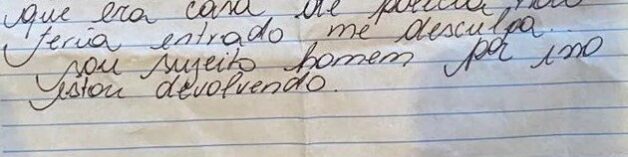 que era casa de policia, não
teria entrado me desculpa.
sou sujeito homem por isso
estou devolvendo.